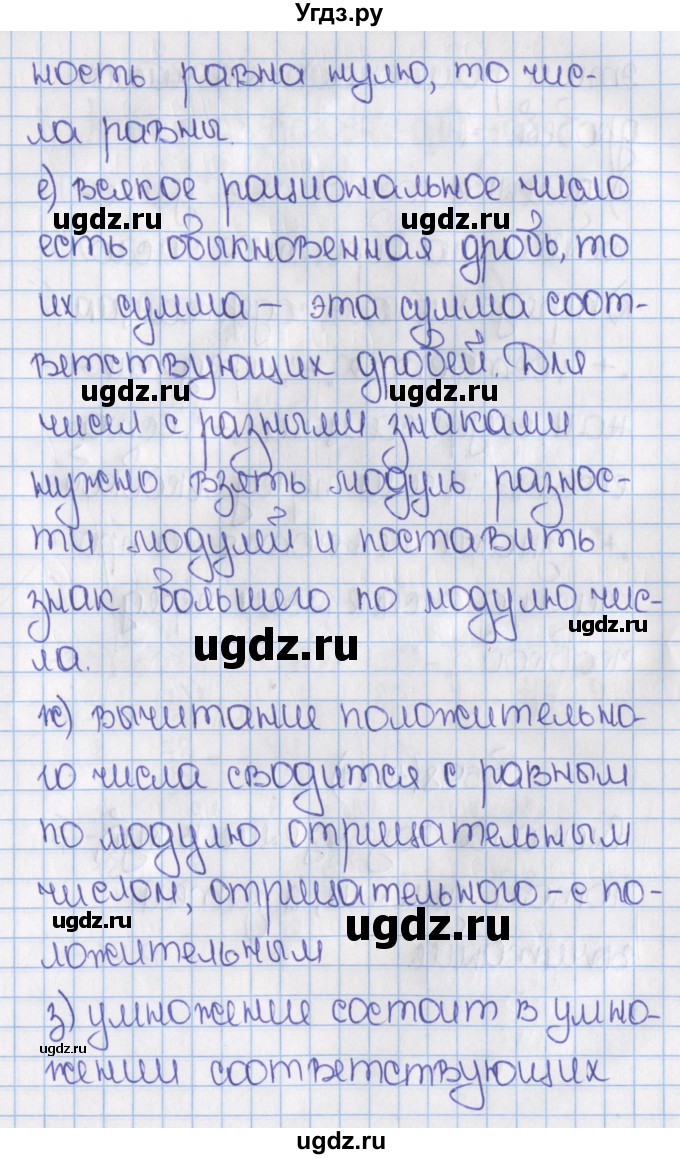 Угдз.ру
ность равна нулю, то чис-
ла равны.
е) всякое рациональное число
ugdz.ru ugdz.ru
есть обыкновенная дробь, то
их сумма – эта сумма соот-
ветствующих дробей. Для
ugdz.ru ugdz.ru
чисел с разными знаками
нужно взять модуль разнос-
ти модулей и поставить
знак большего по модулю чис-
ugdz.ru ugdz.ru
ла.
ж) вычитание положительно-
го числа сводится с равным
по модулю отрицательным
числом, отрицательного – с по-
ugdz.ru ugdz.ru
ложительным
з) умножение состоит в умно-
ugdz.ru
жении соответствующих
ugdz.ru
ugdz.ru